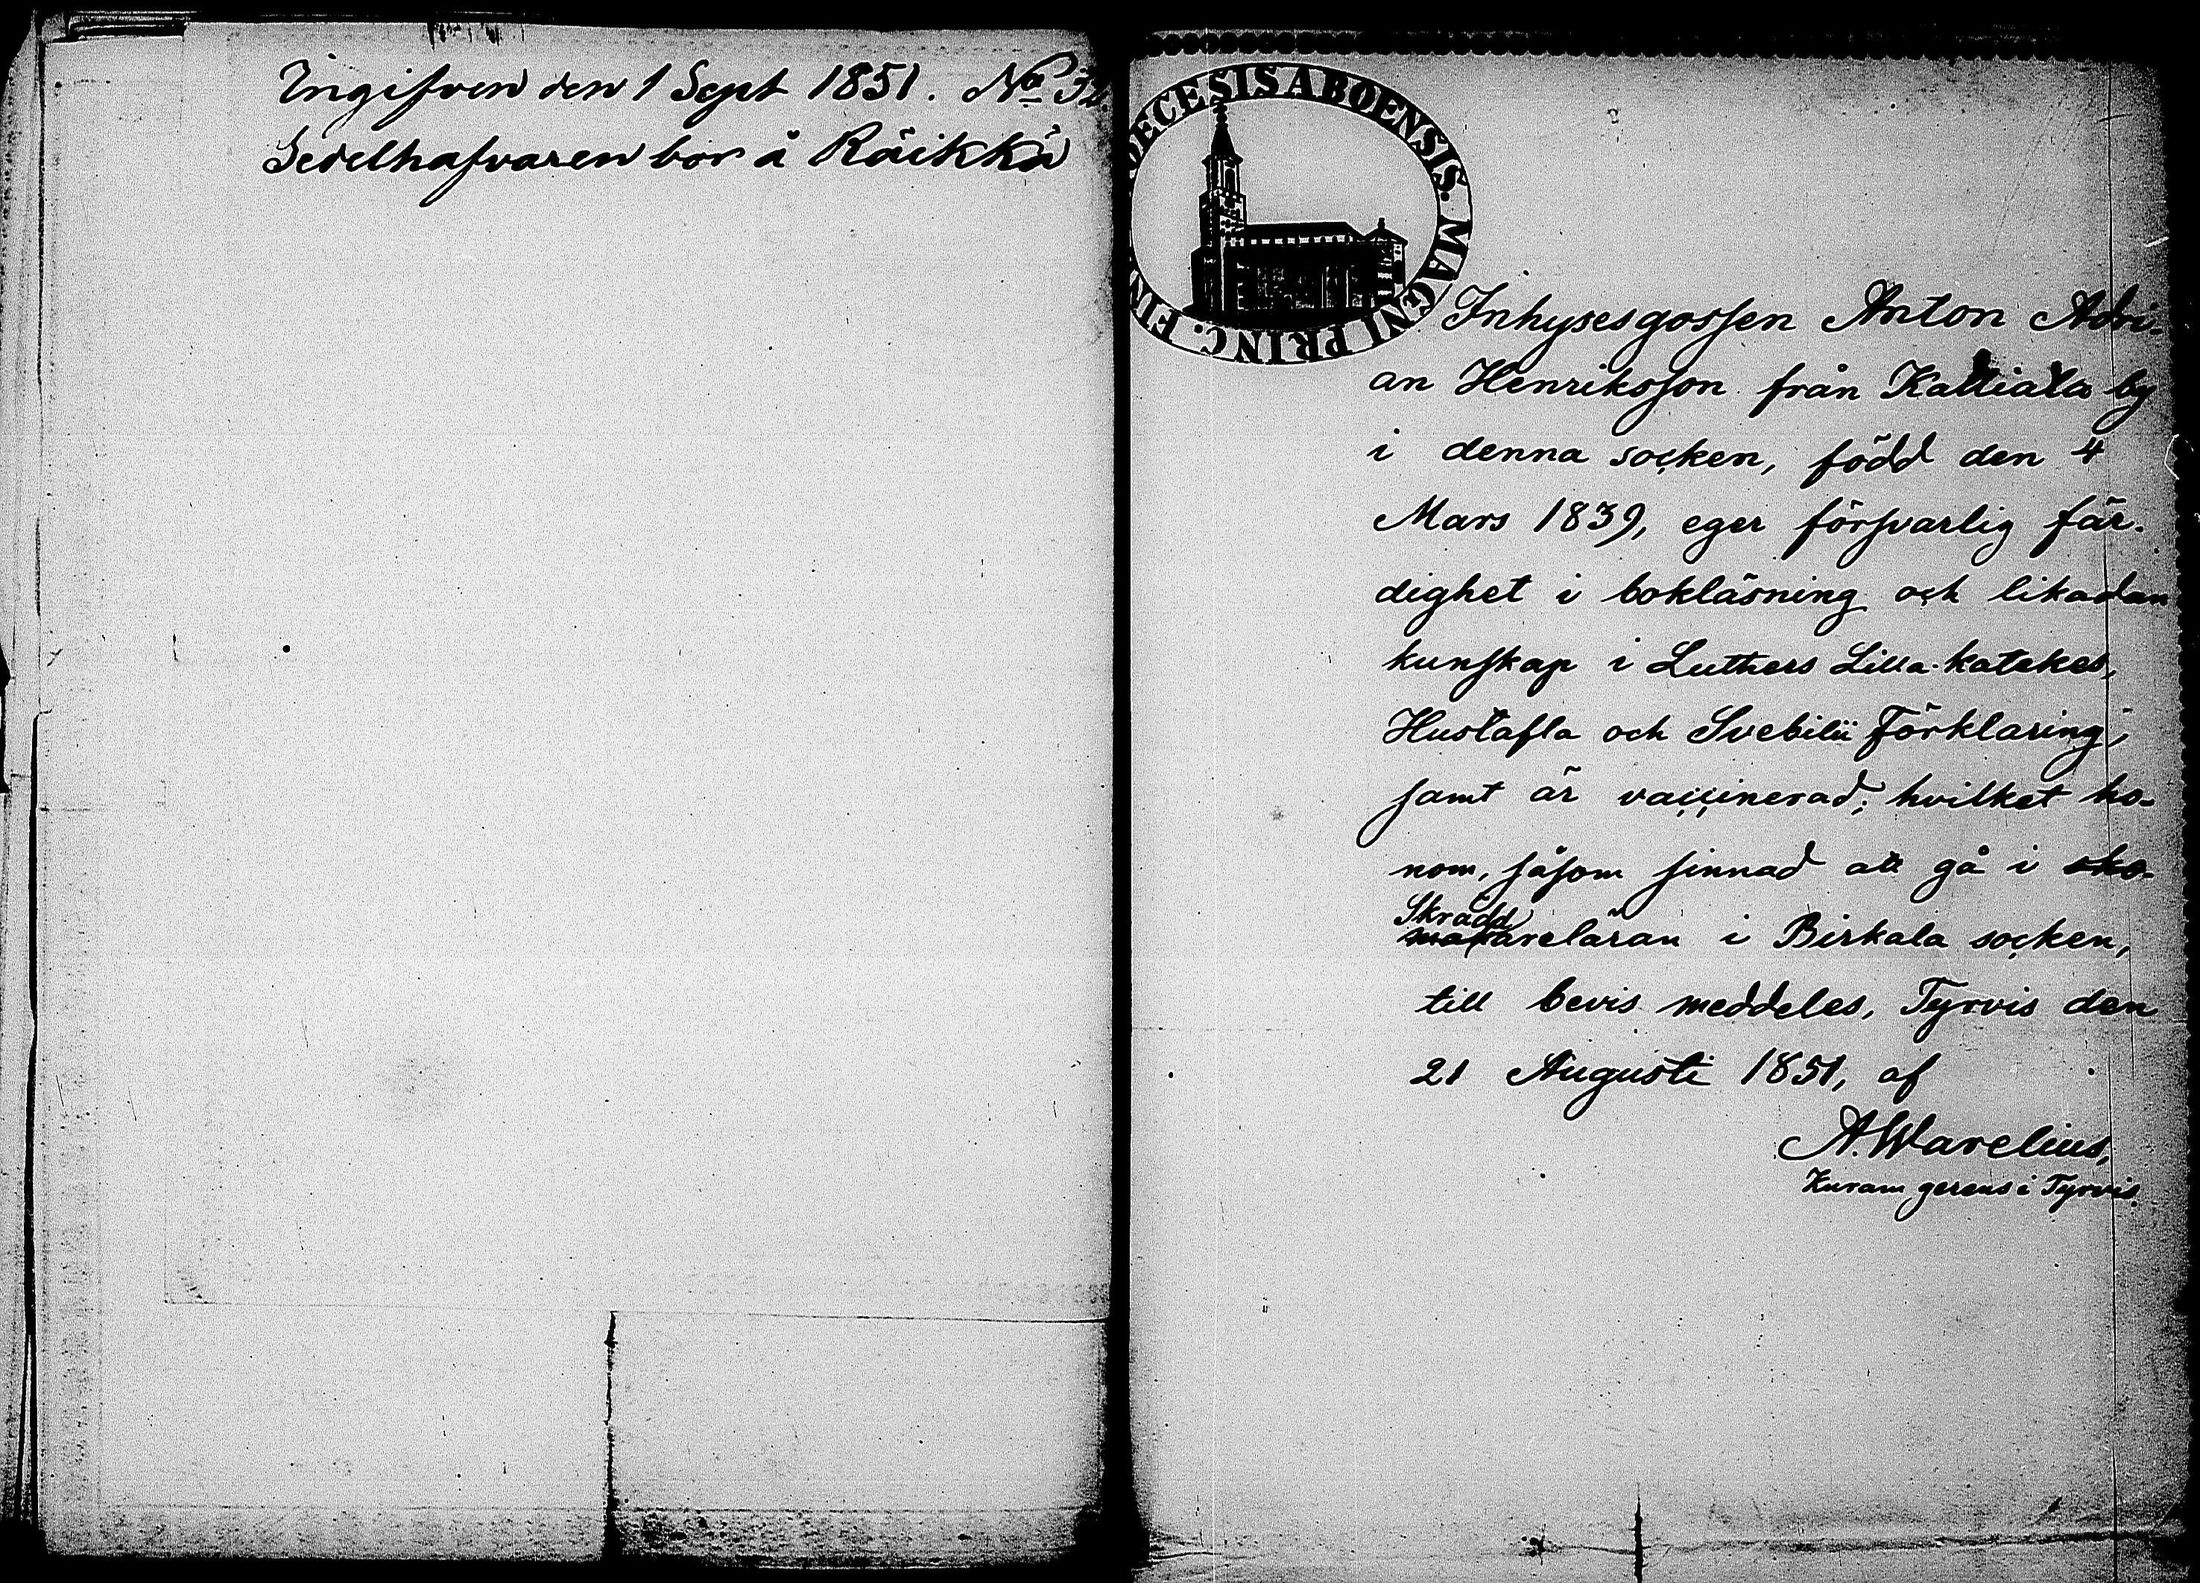 Ingifven den 1 Sept 1851. No 32.
Sedelhafvaren bor å Räikkä
DECESIS ABOENSIS. MAGNI PRINC. FIN
Inhysesgossen Anton Adri-
an Henriksson från Kaltiala by
i denna socken, född den 4
Mars 1839, eger försvarlig fär-
dighet i bokläsning och likadan
kunskap i Luthers Lilla katekes,
Hustafla och Svebilii Förklaring,
samt är vaccinerad; hvilket ho-
nom, såsom sinnad att gå i sko-
Skrädd
makarelåran i Birkala socken,
till bevis meddeles, Tyrvis den
21 Augusti 1851, af
A. Warelius,
Kuram gerens i Tyrvis.